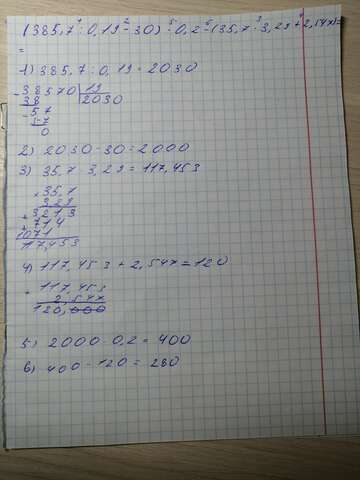 (385,7 : 0,19 - 30) · 0,2 - (35,7 · 3,29 + 2,547) =
=
1) 385,7 : 0,19 = 2030
38570 | 19
38 2030
- 57
57
0
2) 2030 - 30 = 2000
3) 35,7 · 3,29 = 117,453
× 35,7
3,29
+ 3213
+ 714
1071
117,453
4) 117,453 + 2,547 = 120
+ 117,453
2,547
120,000
5) 2000 · 0,2 = 400
6) 400 - 120 = 280